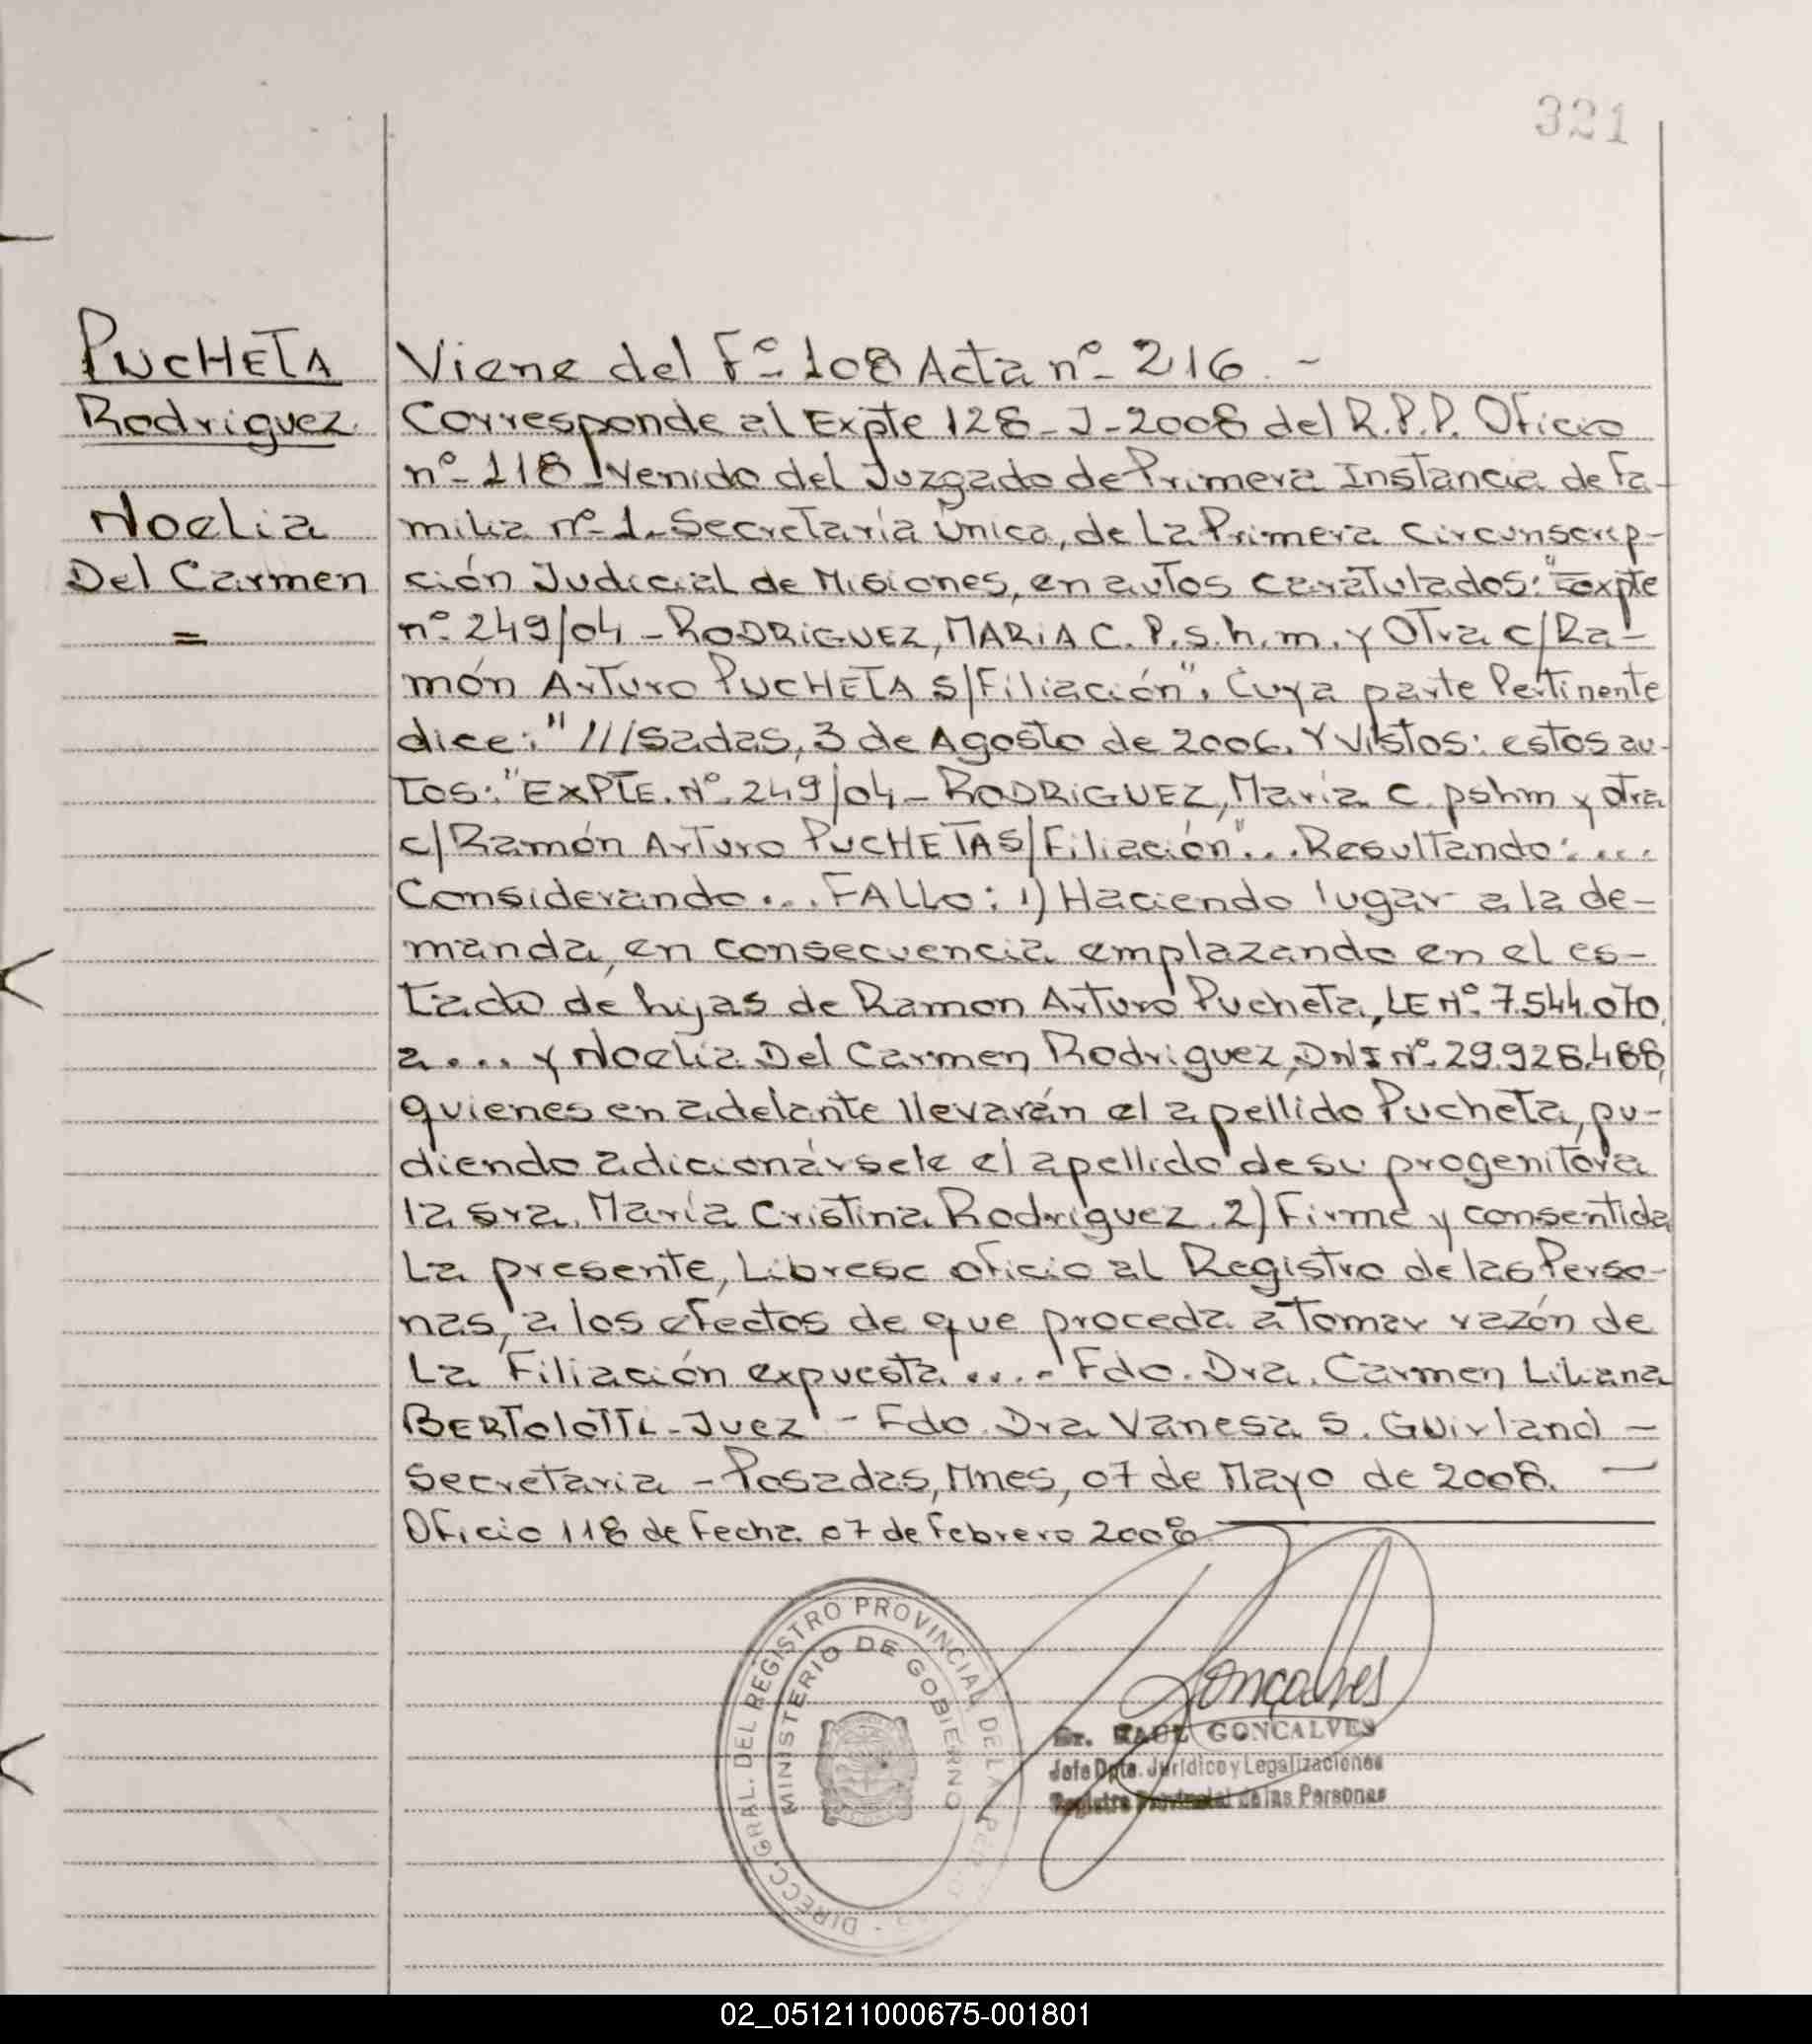 321
PUCHETA
Rodriguez
Noelia
Del Carmen
=
Viene del Fº- 108 Acta nº- 216. -
Corresponde al Expte 128-J-2008 del R.P.P. Oficio
nº- 118 - Venido del Juzgado de Primera Instancia de Fa-
milia nº-1- Secretaría Única, de La Primera Circunscrip-
ción Judicial de Misiones, en autos caratulados: "Expte
nº. 249/04 - RODRIGUEZ, MARIA C. P.s.h.m. y Otra c/Ra-
món Arturo PUCHETA S/Filiación". Cuya parte Pertinente
dice: "///sadas, 3 de Agosto de 2006. Y Vistos: estos au-
tos: "EXPTE. Nº. 249/04 - RODRIGUEZ, María C. pshm y otra
c/Ramón Arturo PUCHETA S/Filiación"... Resultando: ....
Considerando.... FALLO: 1) Haciendo lugar a la de-
manda, en consecuencia emplazando en el es-
tado de hijas de Ramon Arturo Pucheta, LE Nº. 7.544.070,
a.... y Noelia Del Carmen Rodriguez, DNI Nº. 29.928.488,
quienes en adelante llevarán el apellido Pucheta, pu-
diendo adicionársele el apellido de su progenitora
la sra. María Cristina Rodriguez. 2) Firme y consentida
La presente, Librese oficio al Registro de las Perso-
nas, a los efectos de que proceda a tomar razón de
La Filiación expuesta.... - Fdo. Dra. Carmen Liliana
BERTOLOTTI - Juez - Fdo. Dra Vanesa S. Guirland -
Secretaria - Posadas, Mnes, 07 de Mayo de 2008. -
Oficio 118 de fecha 07 de febrero 2008
DIRECC. GRAL. DEL REGISTRO PROVINCIAL DE LAS PERSONAS -
MINISTERIO DE GOBIERNO
Goncalves
Dr. RAUL GONCALVES
Jefe Dpto. Jurídico y Legalizaciones
Registro Provincial de las Personas
02_051211000675-001801